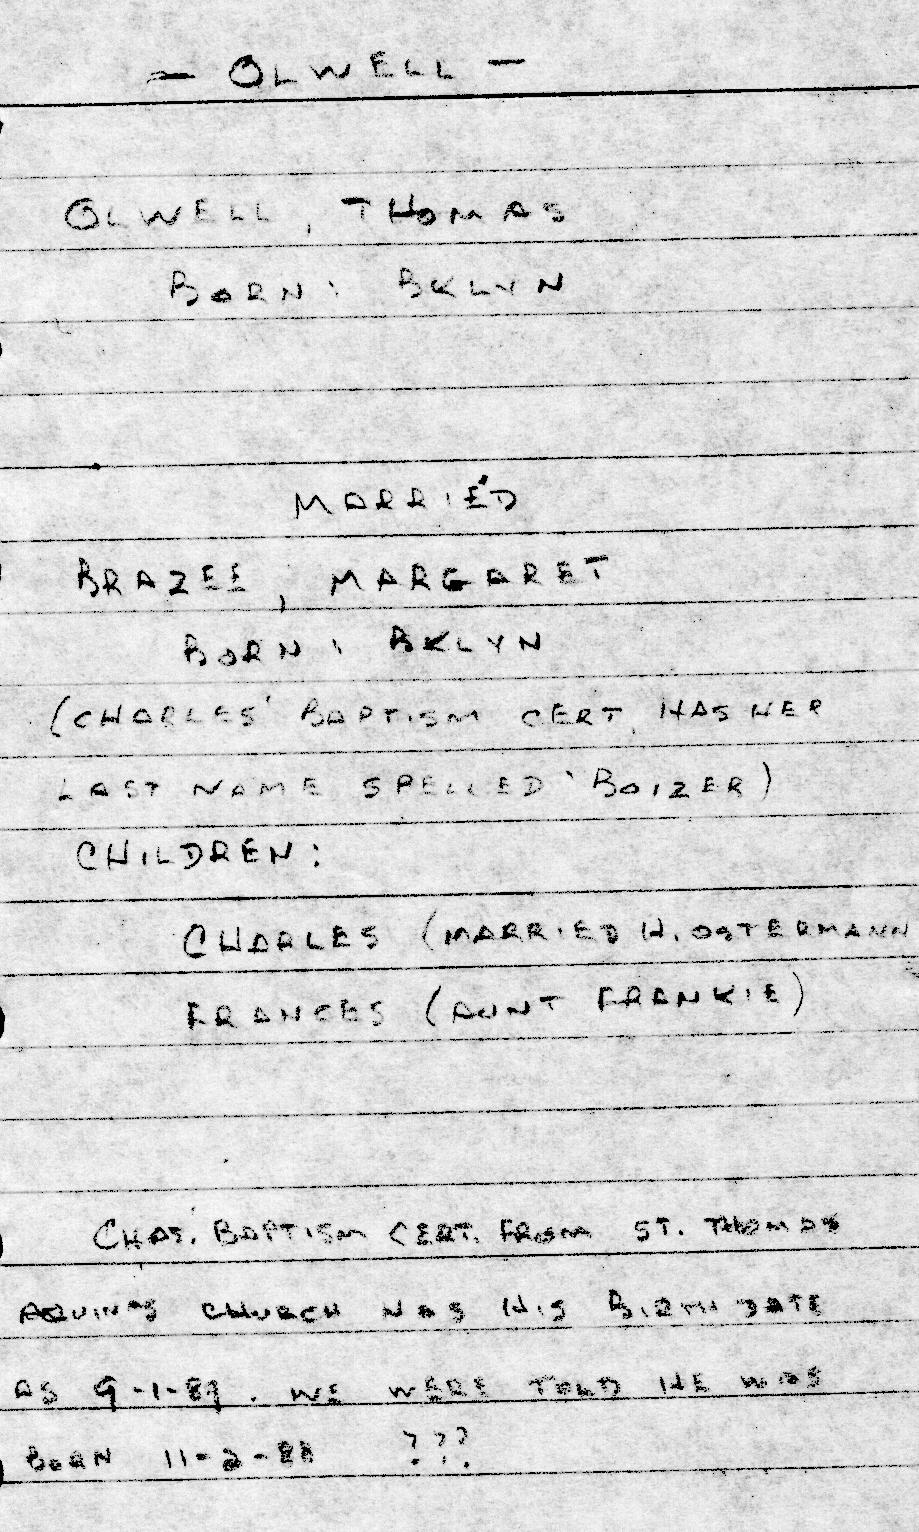 - OLWELL -
OLWELL, THOMAS
BORN: BKLYN
MARRIED
BRAZEE, MARGARET
BORN: BKLYN
(CHARLES' BAPTISM CERT. HAS HER
LAST NAME SPELLED 'BOIZER)
CHILDREN:
CHARLES (MARRIED H. OSTERMANN
FRANCES (AUNT FRANKIE)
CHAS. BAPTISM CERT. FROM ST. THOMAS
AQUINAS CHURCH HAS HIS BIRTH DATE
AS 9-1-89. WE WERE TOLD HE WAS
BORN 11-2-88 ???